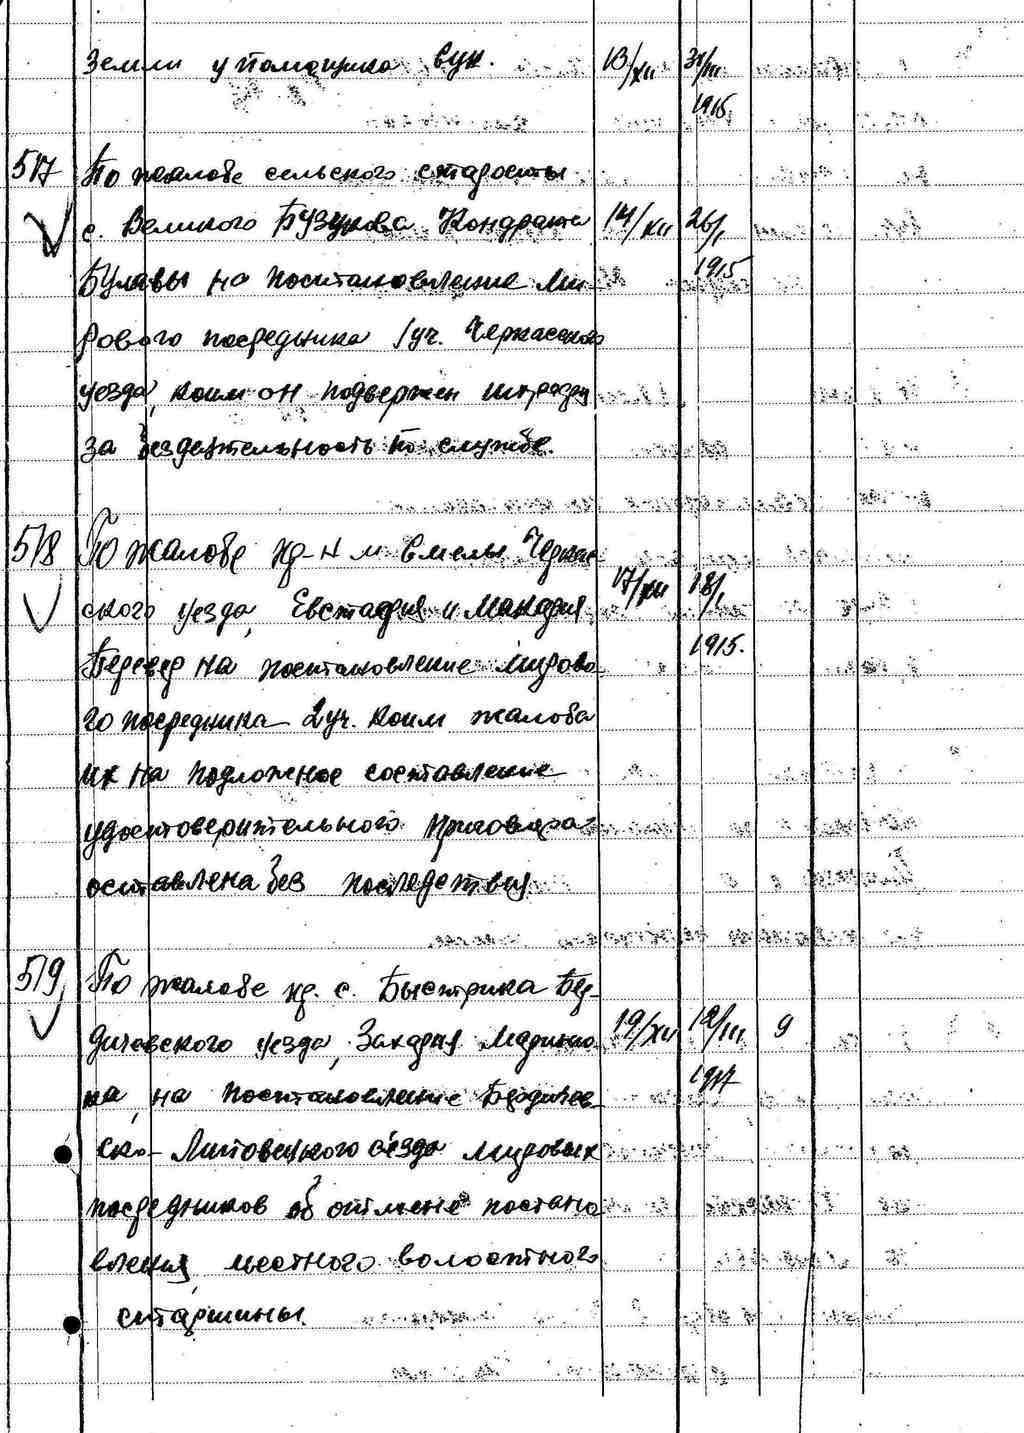 земли у помещика Бук. 13/XII 31/III
1915
517 По жалобе сельского старосты
с. Великого Бузукова Кондрата 14/XII 26/I
Булавы на постановление ми- 1915
рового посредника 1 уч. Черкасского
уезда, коим он подвержен штрафу
за бездеятельность по службе.
518 По жалобе кр-н м. Смелы Черкас-
ского уезда, Евстафия и Макария 17/XII 18/I
Беревер на постановление мирово- 1915.
го посредника 2 уч. коим жалоба
их на подложное составление
удостоверительного приговора
оставлена без последствий.
519 По жалобе кр. с. Быстрика Бер-
дичевского уезда, Захария Мариню- 19/XII 12/III 9
ка, на постановление Бердичев- 1917
ско-Липовецкого съезда мировых
посредников об отмене постано
вления местного волостного
старшины.